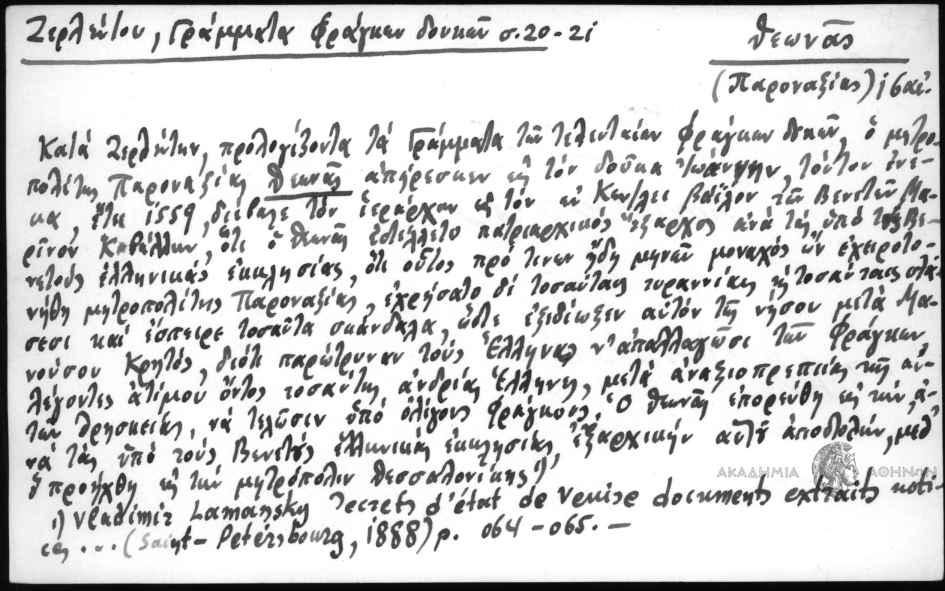 Ζερλέντου, Γράμματα Φράγκων δουκῶν σ. 20-21
Θεωνᾶς
(Παροναξίας) 16 αἰ.
Κατά Ζερλέντην, προλογίζοντα τά Γράμματα τῶν τελευταίων Φράγκων δουκῶν, ὁ μητρο-
πολίτης Παροναξίας Θεωνᾶς ἀπήρεσκεν εἰς τόν δοῦκα Ἰωάννην, τούτου ἕνε-
κα, ἔτει 1559, διέβαλε τόν ἱεράρχην εἰς τόν ἐν Κων/λει βάϊλον τῶν Βενετῶν Μα-
ρῖνον Καβάλλην, ὅτι ὁ Θεωνᾶς ἐστέλλετο πατριαρχικός ἔξαρχος ἀνά τάς ὑπό τούς Βε-
νετούς ἑλληνικάς ἐκκλησίας, ὅτι οὗτος πρό τινων ἤδη μηνῶν μοναχός ὤν ἐχειροτο-
νήθη μητροπολίτης Παροναξίας, ἐχρήσατο δέ τοσαύταις τυραννίαις καί τοσαύταις στά-
σεσι καί ἔσπειρε τοσαῦτα σκάνδαλα, ὥστε ἐξεδίωξεν αὐτόν τῆς νήσου μετά Μα-
νούσου Κρητός, διότι παρώτρυναν τούς Ἕλληνας ν' ἀπαλλαγῶσι τῶν Φράγκων,
λέγοντες ἀτίμου ὄντος τοσαύτης ἀνδρίας Ἕλληνες, μετά ἀναξιοπρεπείας τῆς αὐ-
τῶν θρησκείας, νά τελῶσιν ὑπό ὀλίγους Φράγκους. Ὁ Θεωνᾶς ἐπορεύθη εἰς τήν, ἀ-
νά τάς ὑπό τούς Βενετούς ἑλληνικάς ἐκκλησίας, ἐξαρχικήν αὐτοῦ ἀποστολήν, μεθ'
ὅ προήχθη εἰς τήν μητρόπολιν Θεσσαλονίκης 1)
ΑΚΑΔΗΜΙΑ ΑΘΗΝΩΝ
1) Vladimir Lamansky Secrets d'état de Venise documents extraits noti-
ces ... (Saint-Petersbourg, 1888) p. 064-065.-